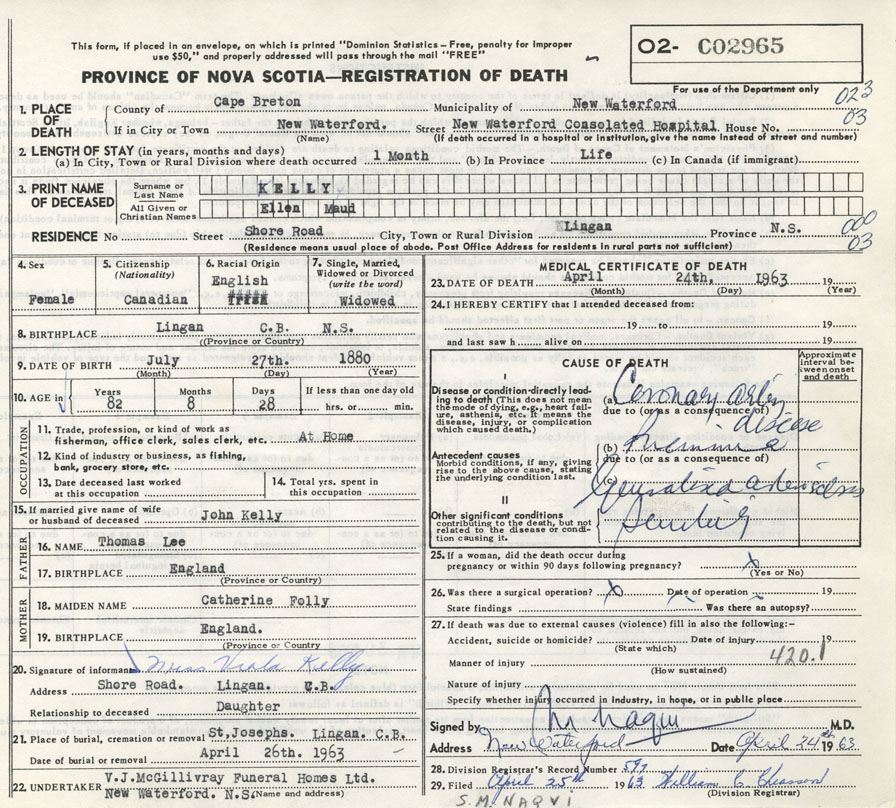 This form, if placed in an envelope, on which is printed "Dominion Statistics – Free, penalty for improper
use $50," and properly addressed will pass through the mail "FREE"
O2- C02965
PROVINCE OF NOVA SCOTIA—REGISTRATION OF DEATH
For use of the Department only
023
03
1. PLACE OF DEATH
County of Cape Breton Municipality of New Waterford
If in City or Town New Waterford. Street New Waterford Consolated Hospital House No.
(Name) (If death occurred in a hospital or institution, give name instead of street and number)
2. LENGTH OF STAY (in years, months and days)
(a) In City, Town or Rural Division where death occurred 1 Month (b) In Province Life (c) In Canada (if immigrant)
3. PRINT NAME OF DECEASED
Surname or Last Name KELLY
All Given or Christian Names Ellen Maud
000
03
RESIDENCE No Street Shore Road City, Town or Rural Division Lingan Province N.S.
(Residence means usual place of abode. Post Office Address for residents in rural parts not sufficient)
4. Sex
Female
5. Citizenship
(Nationality)
Canadian
6. Racial Origin
English
7. Single, Married,
Widowed or Divorced
(write the word)
Widowed
8. BIRTHPLACE Lingan C.B. N.S.
(Province or Country)
9. DATE OF BIRTH July 27th. 1880
(Month) (Day) (Year)
10. AGE in
Years
82
Months
8
Days
28
If less than one day old
hrs. or min.
OCCUPATION
11. Trade, profession, or kind of work as
fisherman, office clerk, sales clerk, etc. At Home
12. Kind of industry or business, as fishing,
bank, grocery store, etc.
13. Date deceased last worked
at this occupation
14. Total yrs. spent in
this occupation
15. If married give name of wife
or husband of deceased John Kelly
FATHER
16. NAME Thomas Lee
17. BIRTHPLACE England
(Province or Country)
MOTHER
18. MAIDEN NAME Catherine Folly
19. BIRTHPLACE England.
(Province or Country
20. Signature of informant Miss Viola Kelly
Address Shore Road. Lingan. C.B.
Relationship to deceased Daughter
21. Place of burial, cremation or removal St,Josephs. Lingan. C.B.
Date of burial or removal April 26th. 1963
22. UNDERTAKER V.J.McGillivray Funeral Homes Ltd.
New Waterford. N.S. (Name and address)
MEDICAL CERTIFICATE OF DEATH
23. DATE OF DEATH April 24th, 1963 19
(Month) (Day) (Year)
24. I HEREBY CERTIFY that I attended deceased from:
19 to 19
and last saw h alive on 19
CAUSE OF DEATH
Approximate
interval be-
tween onset
and death
I
Disease or condition directly lead-
ing to death (This does not mean
the mode of dying, e.g., heart fail-
ure, asthenia, etc. It means the
disease, injury, or complication
which caused death.)
(a) Coronary artery
due to (or as a consequence of)
disease
Antecedent causes
Morbid conditions, if any, giving
rise to the above cause, stating
the underlying condition last.
(b)
due to (or as a consequence of)
(c) Generalized
II
Other significant conditions
contributing to the death, but not
related to the disease or condi-
tion causing it.
Senility
25. If a woman, did the death occur during
pregnancy or within 90 days following pregnancy? x
(Yes or No)
26. Was there a surgical operation? x Date of operation 19
State findings Was there an autopsy?
27. If death was due to external causes (violence) fill in also the following:-
Accident, suicide or homicide? Date of injury 19
(State which)
420.1
Manner of injury
(How sustained)
Nature of injury
Specify whether injury occurred in industry, in home, or in public place
Signed by S M Naqvi M.D.
Address New Waterford Date April 24th 1963
28. Division Registrar's Record Number 597
29. Filed April 25th 1963 William C. Chiasson
(Division Registrar)
S.M. NAQVI